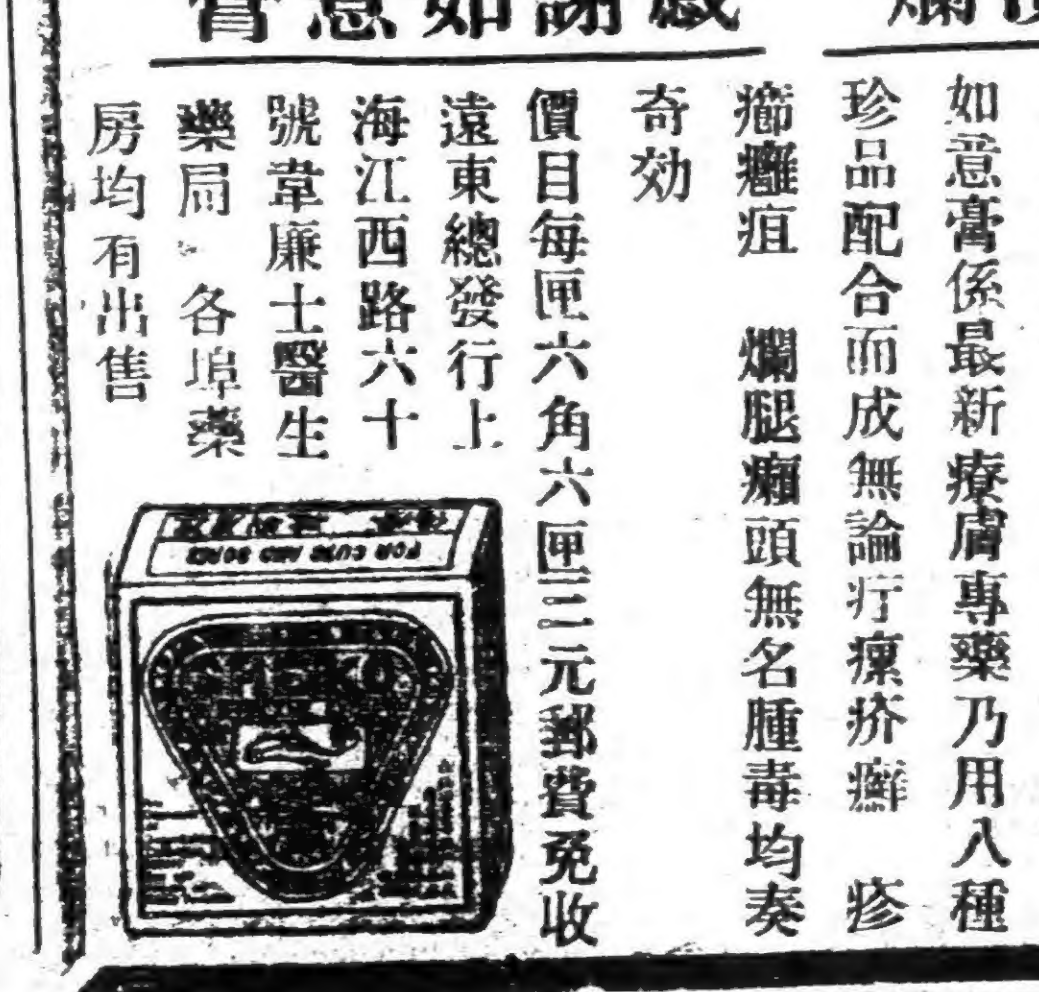 感謝如意膏
如意膏係最新療膚專藥乃用八種
珍品配合而成無論疔瘰疥癬 疹
癤癰疽 爛腿癩頭無名腫毒均奏
奇効
價目每匣六角六匣三元郵費免收
遠東總發行上
海江西路六十
號韋廉士醫生
藥局 各埠藥
房均有出售
FOR CUTS AND SORES